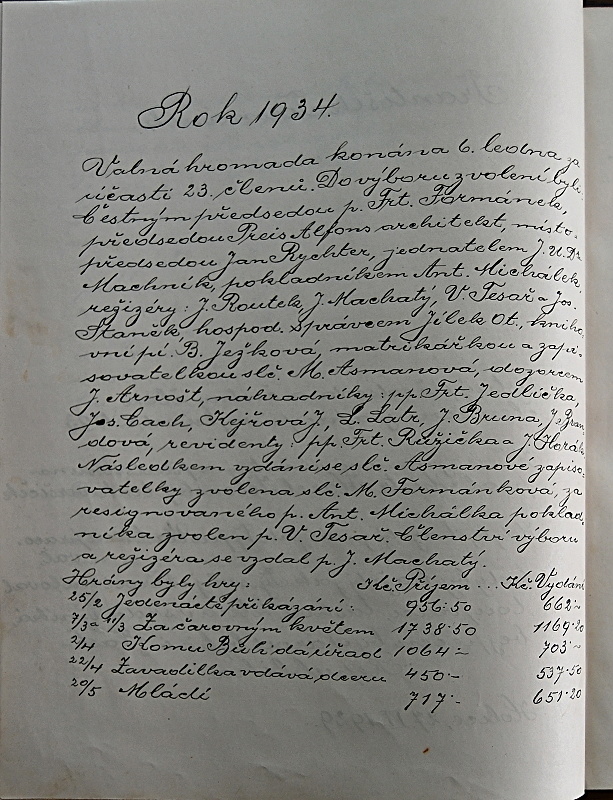 Rok 1934.
Valná hromada konána 6. ledna za
účasti 23. členů. Do výboru zvoleni byli
Čestným předsedou p. Frt. Formánek,
předsedou Preis Alfons architekt, místo-
předsedou Jan Rychter, jednatelem J.U.Dr.
Machník, pokladníkem Ant. Michálek
režizéry: J. Routek, J. Machatý, V. Tesař a Jos.
Staněk hospod. správcem Jílek Ot., kniho-
vní pí. B. Ježková, matrikářkou a zapi-
sovatelkou slč. M. Asmanová, dozorcem
J. Arnošt, náhradníky: pp. Frt. Jedlička,
Jos. Cach, Kejřová J., L. Latr, J. Bruna, J.
dová, revidenty: pp. Frt. Růžička a J. Horák
Následkem vzdání se slč. Asmanové zapiso-
vatelky zvolena slč. M. Formánková, za
resignovaného p. Ant. Michálka poklad-
níka zvolen p. V. Tesař. Členství výboru
a režizéra se vzdal p. J. Machatý.
Hrány byly hry: Kč. Příjem ... Kč. Vydání
25/2 Jedenácté přikázaní: 956·50 662·-
7/3 a 11/3 Za čarovným květem 1738·50 1169·20
2/4 Komu Bůh dá úřad 1064·- 703·-
22/4 Zavadilka vdává dceru 450·- 537·50
20/5 Mládí 717·- 651·20